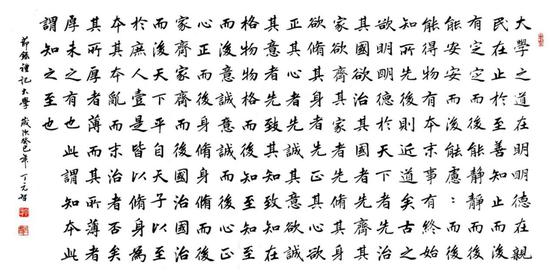 大學之道在明明德在親
民在止於至善知止而後
有定定而後能靜靜而後
能安安而後能慮：而後
能得物有本末事有終始
知所先後則近道矣古之
欲明明德於天下者先治
其國欲治其國者先齊其
家欲齊其家者先脩其身
欲脩其身者先正其心欲
正其心者先誠其意欲誠
其意者先致其知致知在
格物物格而後知至知至
而後意誠意誠而後心正
心正而後身脩身脩而後
家齊家齊而後國治國治
而後天下平自天子以至
於庶人壹是皆以脩身為
本其本亂而末治者否矣
其所厚者薄而其所薄者
厚未之有也此謂知本此
謂知之至也
節錄禮記大學 歲次癸巳年丁元